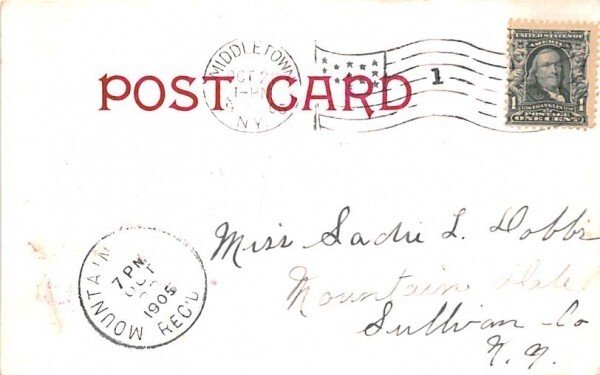 MIDDLETOWN
OCT 2
1-PM
N.Y.
1
UNITED STATES OF
AMERICA
1 FRANKLIN 1
POSTAGE
ONE CENT
POST CARD
Miss Sadie L. Dobbs
Mountain Dale
Sullivan Co
N.Y.
MOUNTAIN
7 PM
OCT
1905
REC'D